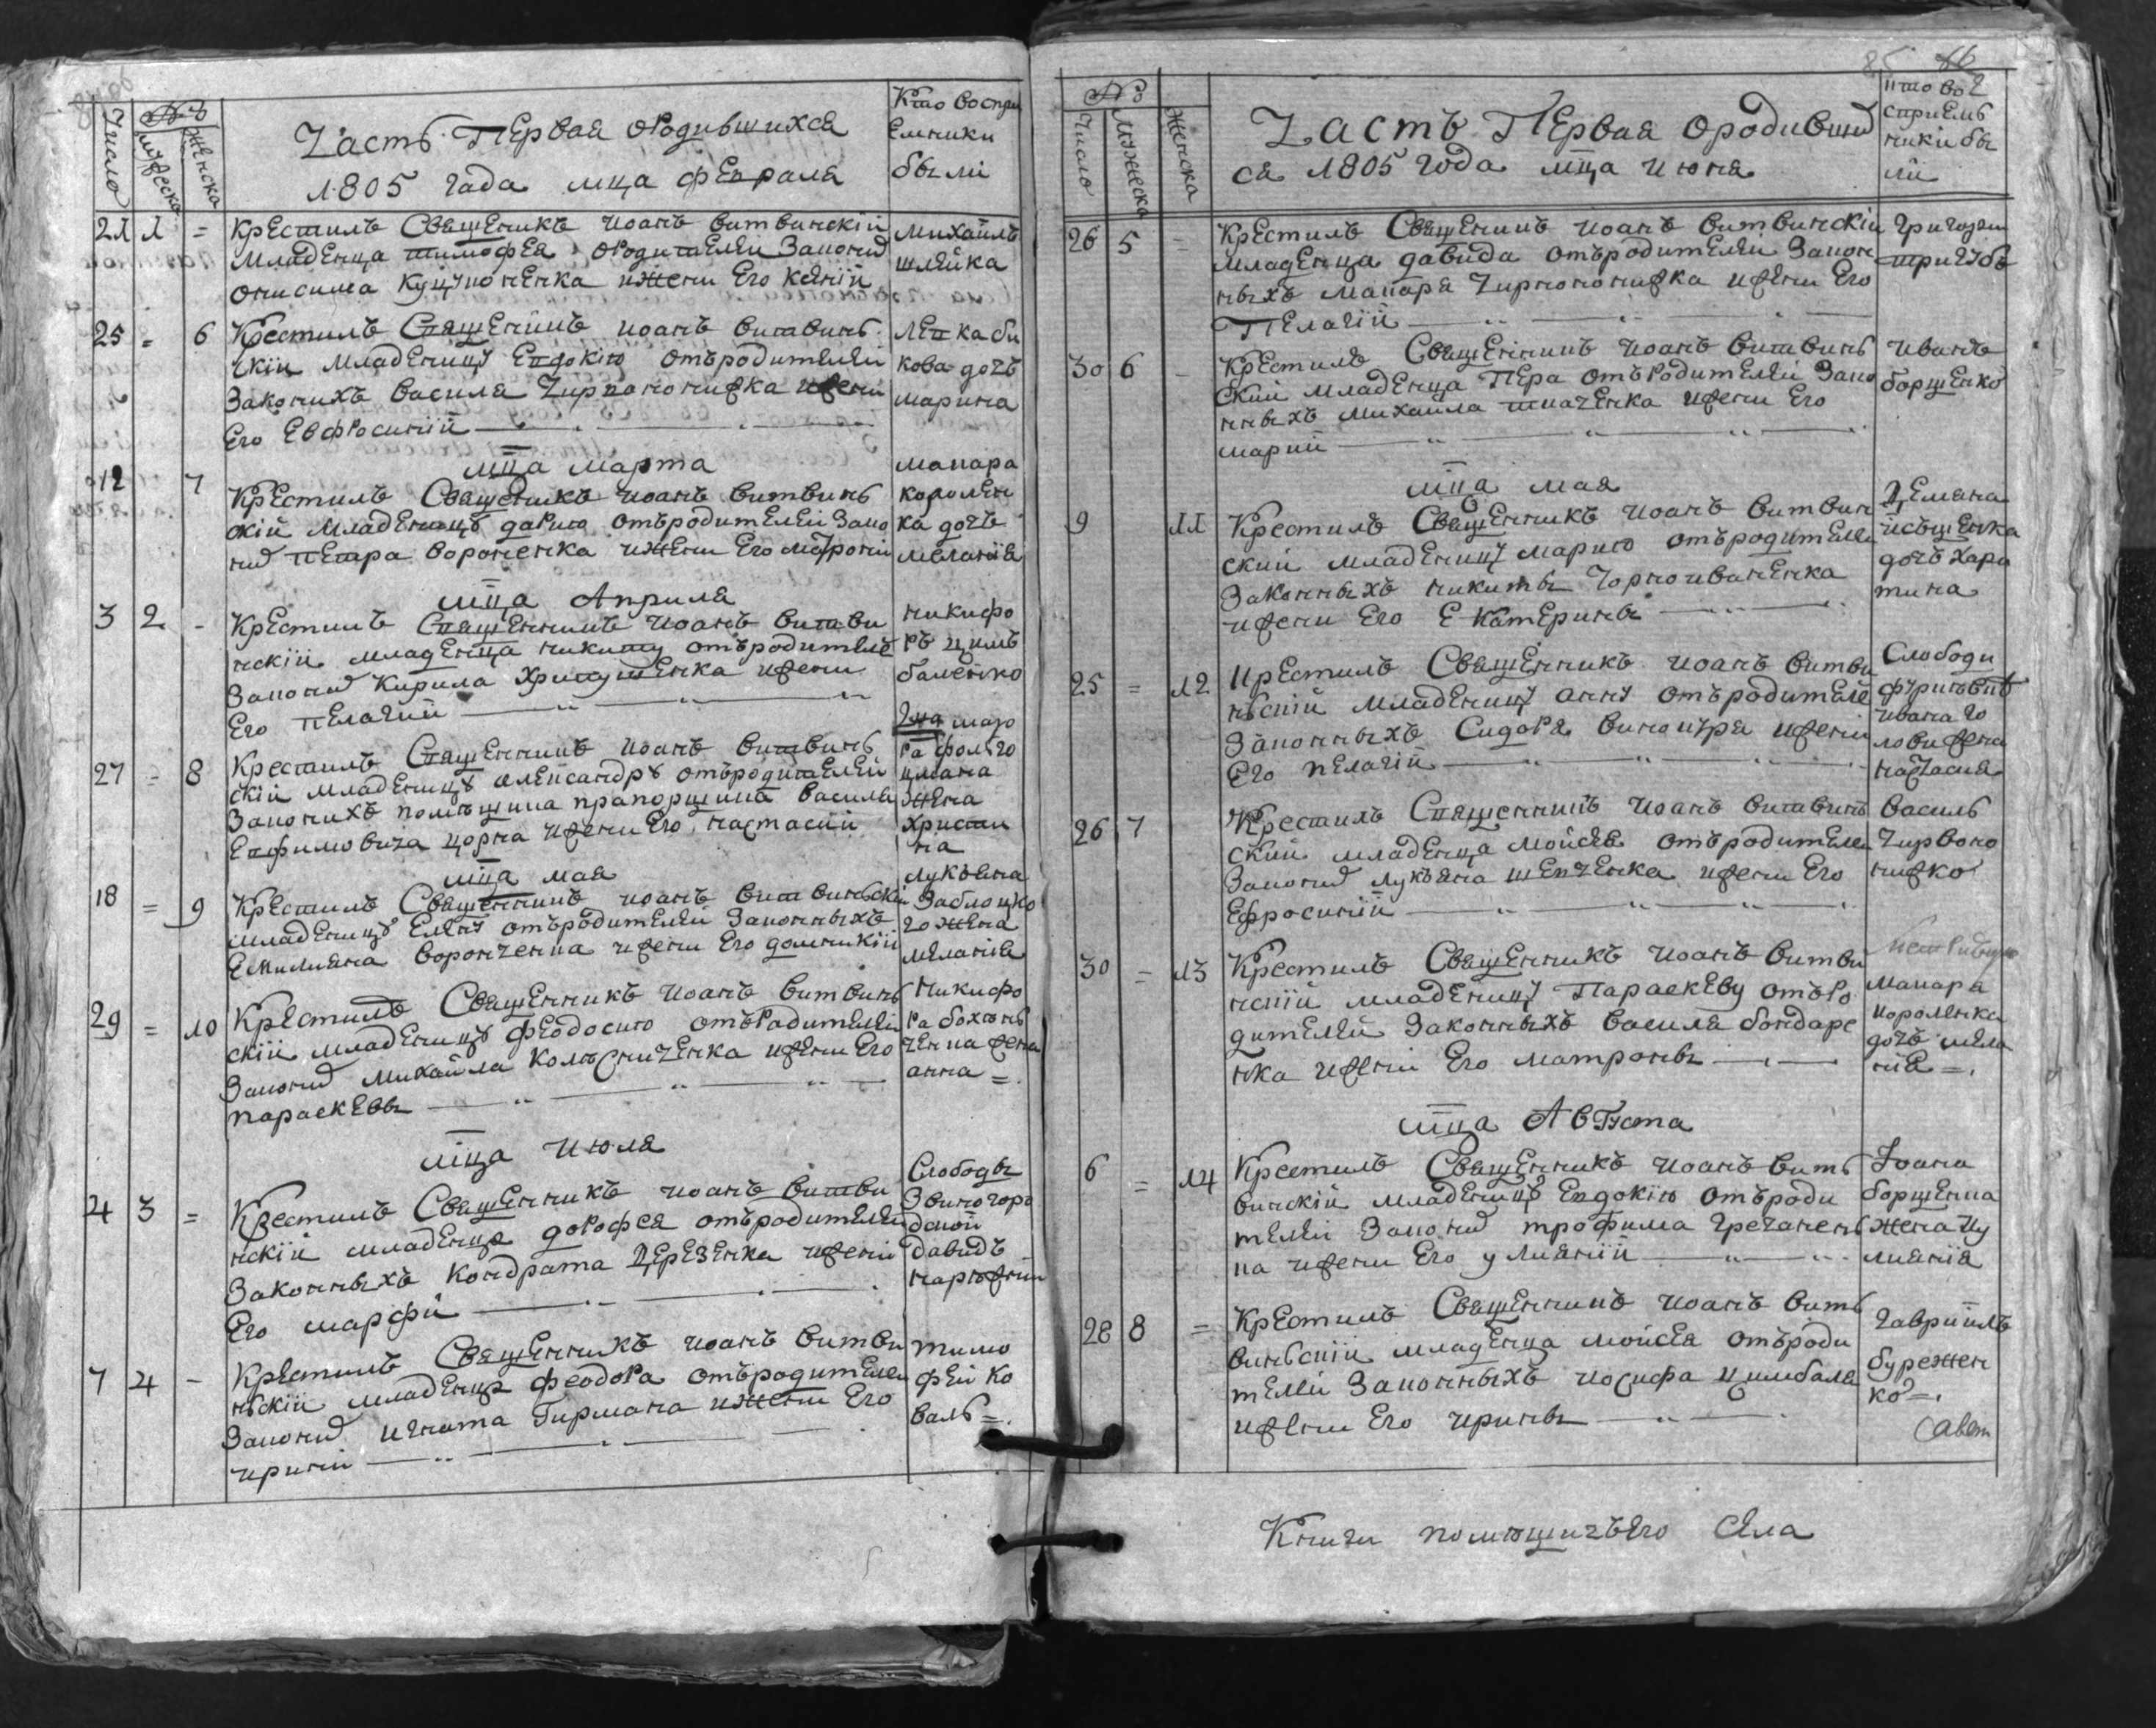 Часть Первая ородившихся
1805 года мца февраля
Число
№
мужеска
женска
Кто воспри
емники
были
21 1 =
Крестилъ Священикъ иоанъ витвинскій
младенца тимофея ородителеи Законнѵ
онисима Куцуконенка ижени Его Ксеніи
михайлъ
шлейка
25 = 6
Крестилъ Священикъ иоанъ витвинь
скіи младеницу Евдокію отъродителеи
Законихъ василя Чирвононожка ижени
Его Евфросиніи
Левка би
кова дочъ
марина
мца марта
12 7
Крестилъ Священикъ иоанъ витвинь
скій младеницу дарию отъродителей Зако
нѵ петра вороненка ижени Его матроні
макара
королен
ка дочъ
меланія
мца Априля
3 2 -
Крестилъ Священникъ иоанъ витви
нскіи младенца никиту отъродителе
Законѵ Кирила Христущенка ижени
Его пелагии
никифо
ръ цим
баленко
27 = 8
Крестилъ Священникъ иоанъ витвинь
скіи младеницу александру отъродителей
Законихъ помещика прапорщика василя
Евфимовича цорна ижени Его настасии
жена
христи
на
мца мая
18 = 9
Крестилъ Священникъ иоанъ витвиньскі
младеницу Елену отъродителеи Законныхъ
Емилияна воронченка ижени Его домникіи
лукъяна
Заблоцко
го жена
меланія
29 = 10
Крестилъ Священникъ иоанъ витвинь
скіи младеницу феодосию отъродителеи
Законѵ михайла Колесниченка ижени Его
параскевы
никифо
ра
жена
анна =.
мца июля
4 3 =
Крестилъ Священникъ иоанъ витви
нскіи младенца дорофея отъродителеи
Законныхъ Кондрата Дерезенка ижени
Его марфи
Слободы
Звиногоро
дской
давидъ
7 4 -
Крестилъ Священникъ иоанъ витви
ньскіи младенца феодора отъродителеи
Законѵ игната Гирмана ижени Его
ирини
тимо
феи Ко
валь =.
85 86
Часть Первая ородивши
ся 1805 года мца июня
Число
№
мужеска
женска
кто во
сприем
ники бы
ли
26 5 -
Крестилъ Священикъ иоанъ витвинскіи
младенца давида отъродителеи Закон
ныхъ макара Чирноножка ижени Его
Пелагіи
Григории
тригубъ
30 6 -
Крестилъ Священникъ иоанъ витвинь
скии младенца Пера отъродителеи Зако
нныхъ михаила ткаченка ижени Его
марии
иванъ
борщенко
мца мая
9 11
Крестилъ Священникъ иоанъ витвин
скии младеницу марию отъродителеи
Законныхъ никиты Чорноиваненка
ижени Его Екатерины
Демяна
дочъ хари
тина
25 = 12
Крестилъ Священникъ иоанъ витви
ньскіи младеницу анну отъродителе
Законныхъ Сидора винокура ижени
Его пелагіи
Слободи
ивана го
лови жена
настасия
26 7
Крестилъ Священникъ иоанъ витвинь
скии младенца мойсея отъродителеи
Законѵ лукъяна шевченка ижени Его
Ефросиніи
василь
Чирвоно
ножко
30 = 13
Крестилъ Священникъ иоанъ витви
нскіи младеницу Параскеву отъро
дителеи Законныхъ василя бондаре
нка ижени Его матроны
макара
короленка
дочъ мела
нія =.
мца Августа
6 = 14
Крестилъ Священникъ иоанъ вить
винскіи младеницу Евдокію отъроди
телеи Законѵ трофима Гречанень
ка ижени Его улияніи
Иоана
борщенка
жена иу
лианія
28 8 =
Крестилъ Священникъ иоанъ вить
виньскіи младенца мойсея отъроди
телеи Законныхъ иосифа цимбала
ижени Его ирины
гавриилъ
бурежен
ко =.
Книги помещичьего села